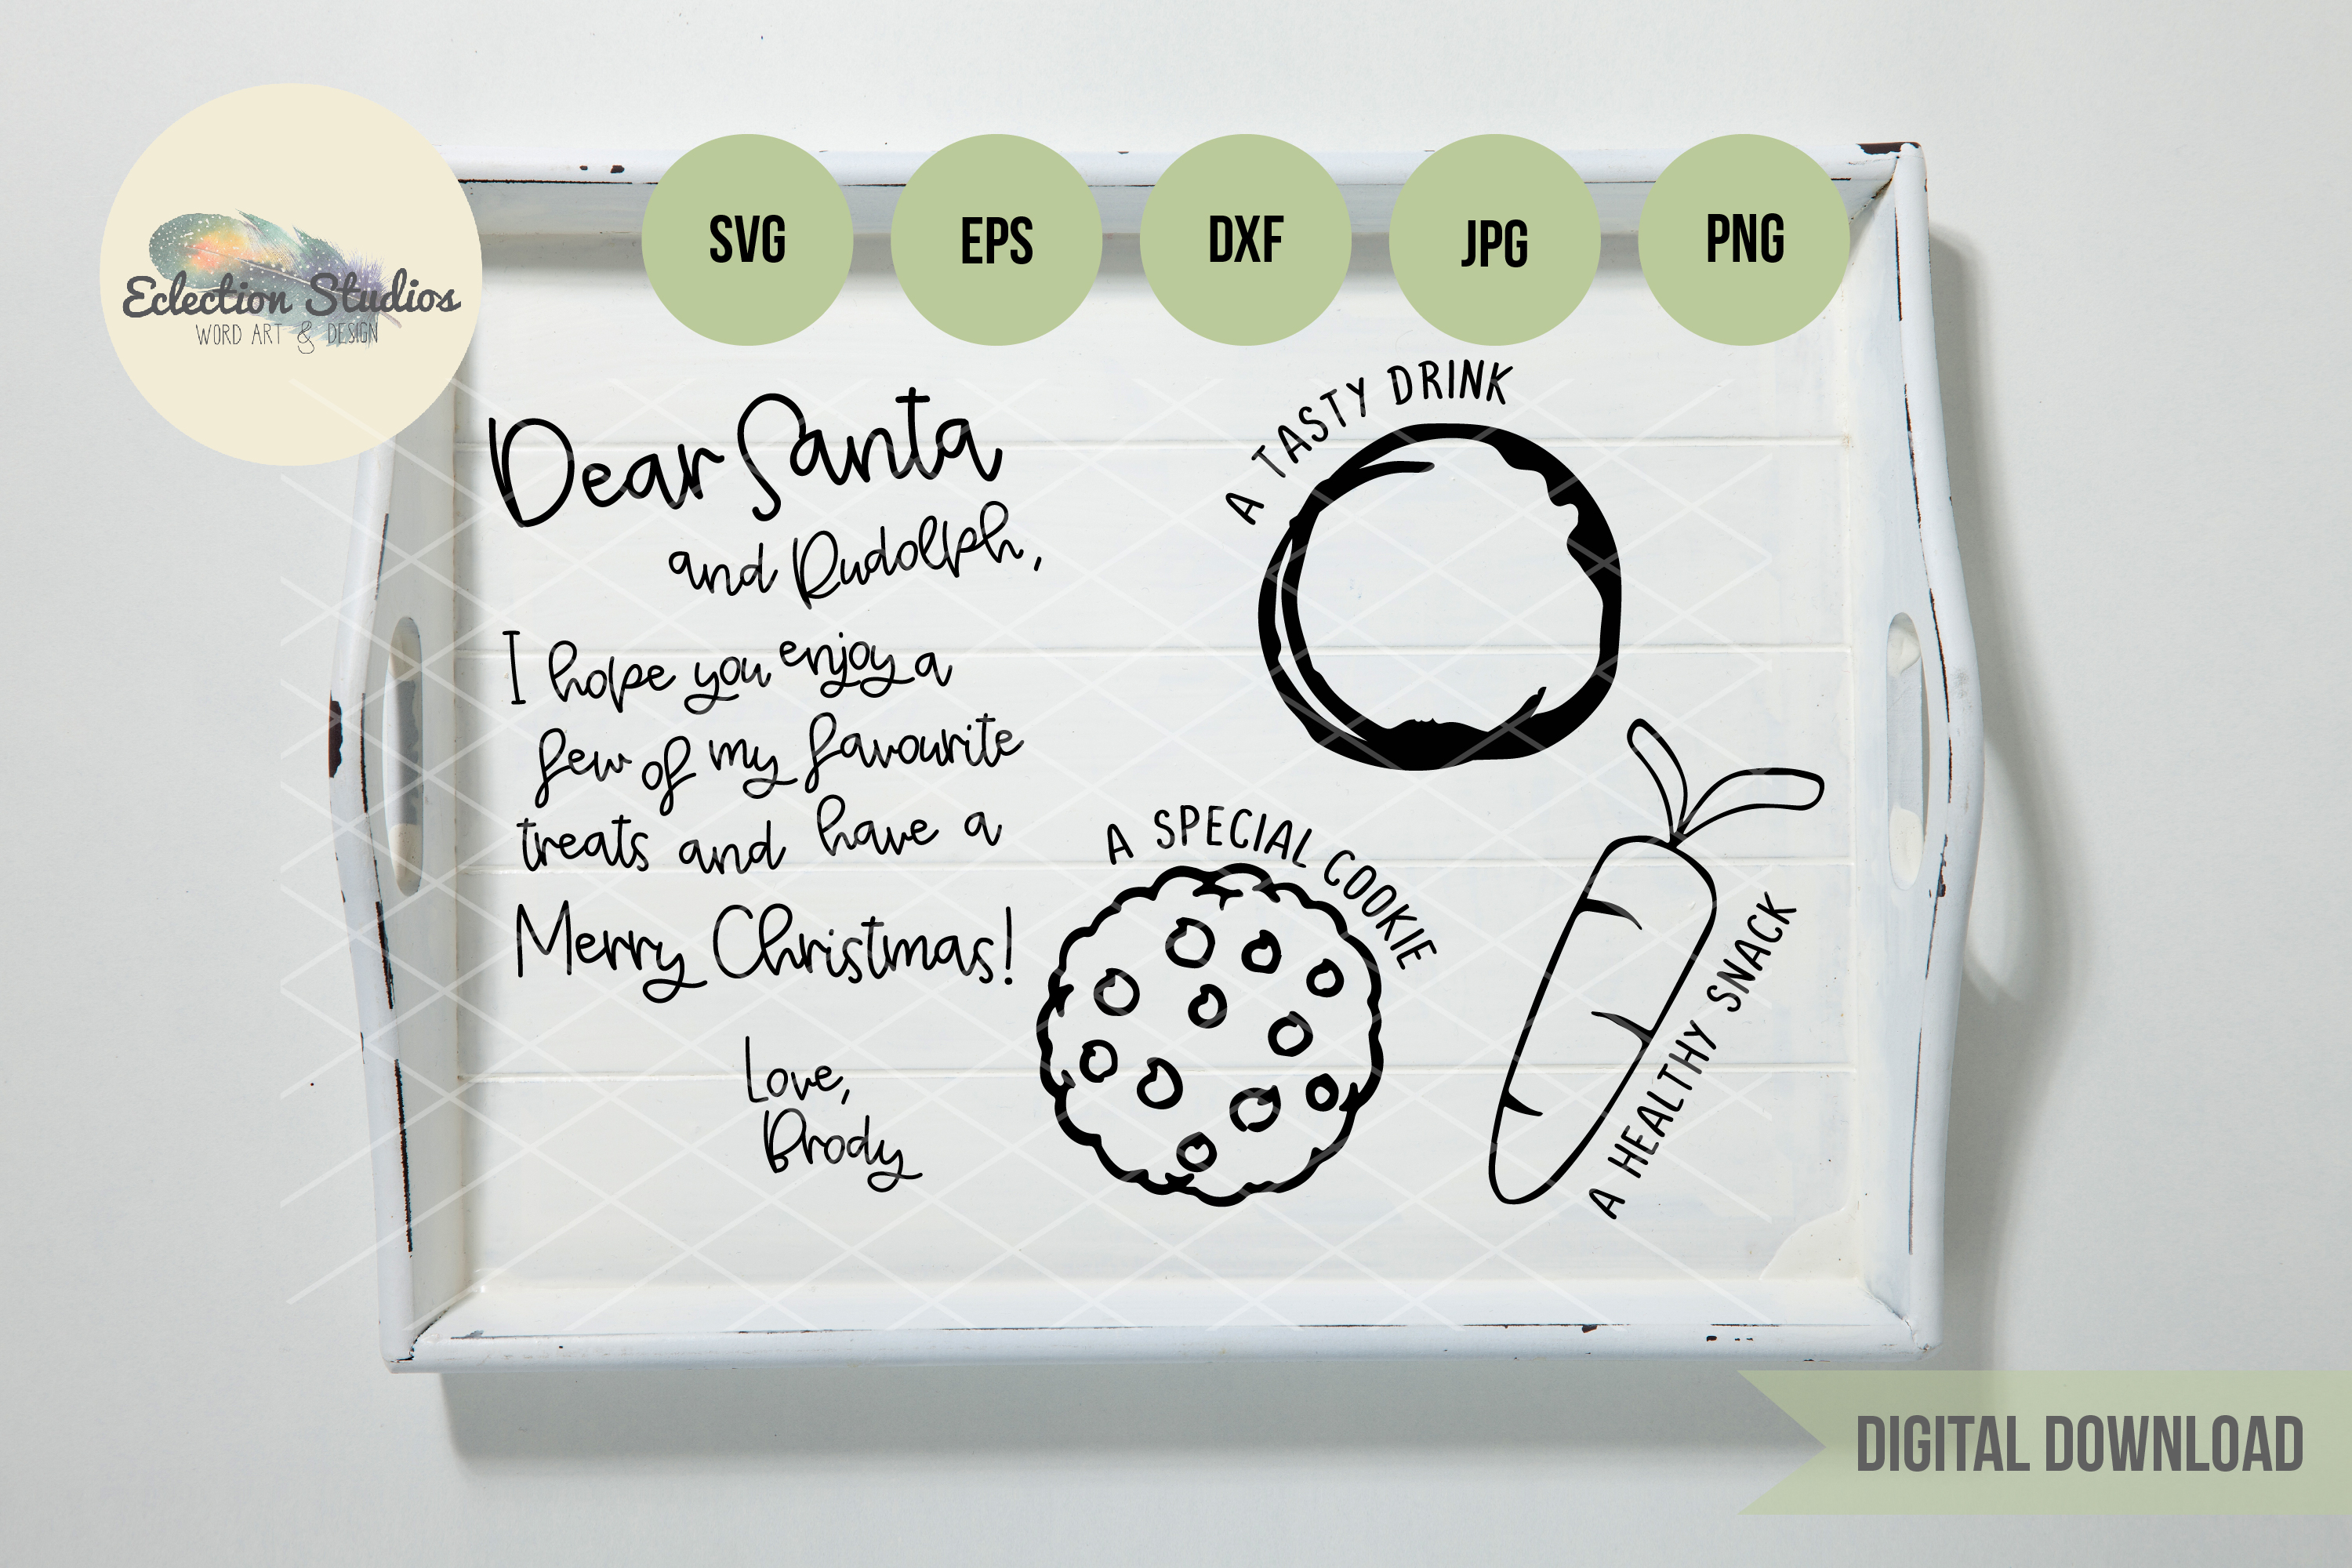 Eclection Studios
WORD ART & DESIGN
SVG
EPS
DXF
JPG
PNG
Dear Santa
and Rudolph,
I hope you enjoy a
few of my favourite
treats and have a
Merry Christmas!
Love,
Brody
A TASTY DRINK
A SPECIAL COOKIE
A HEALTHY SNACK
DIGITAL DOWNLOAD